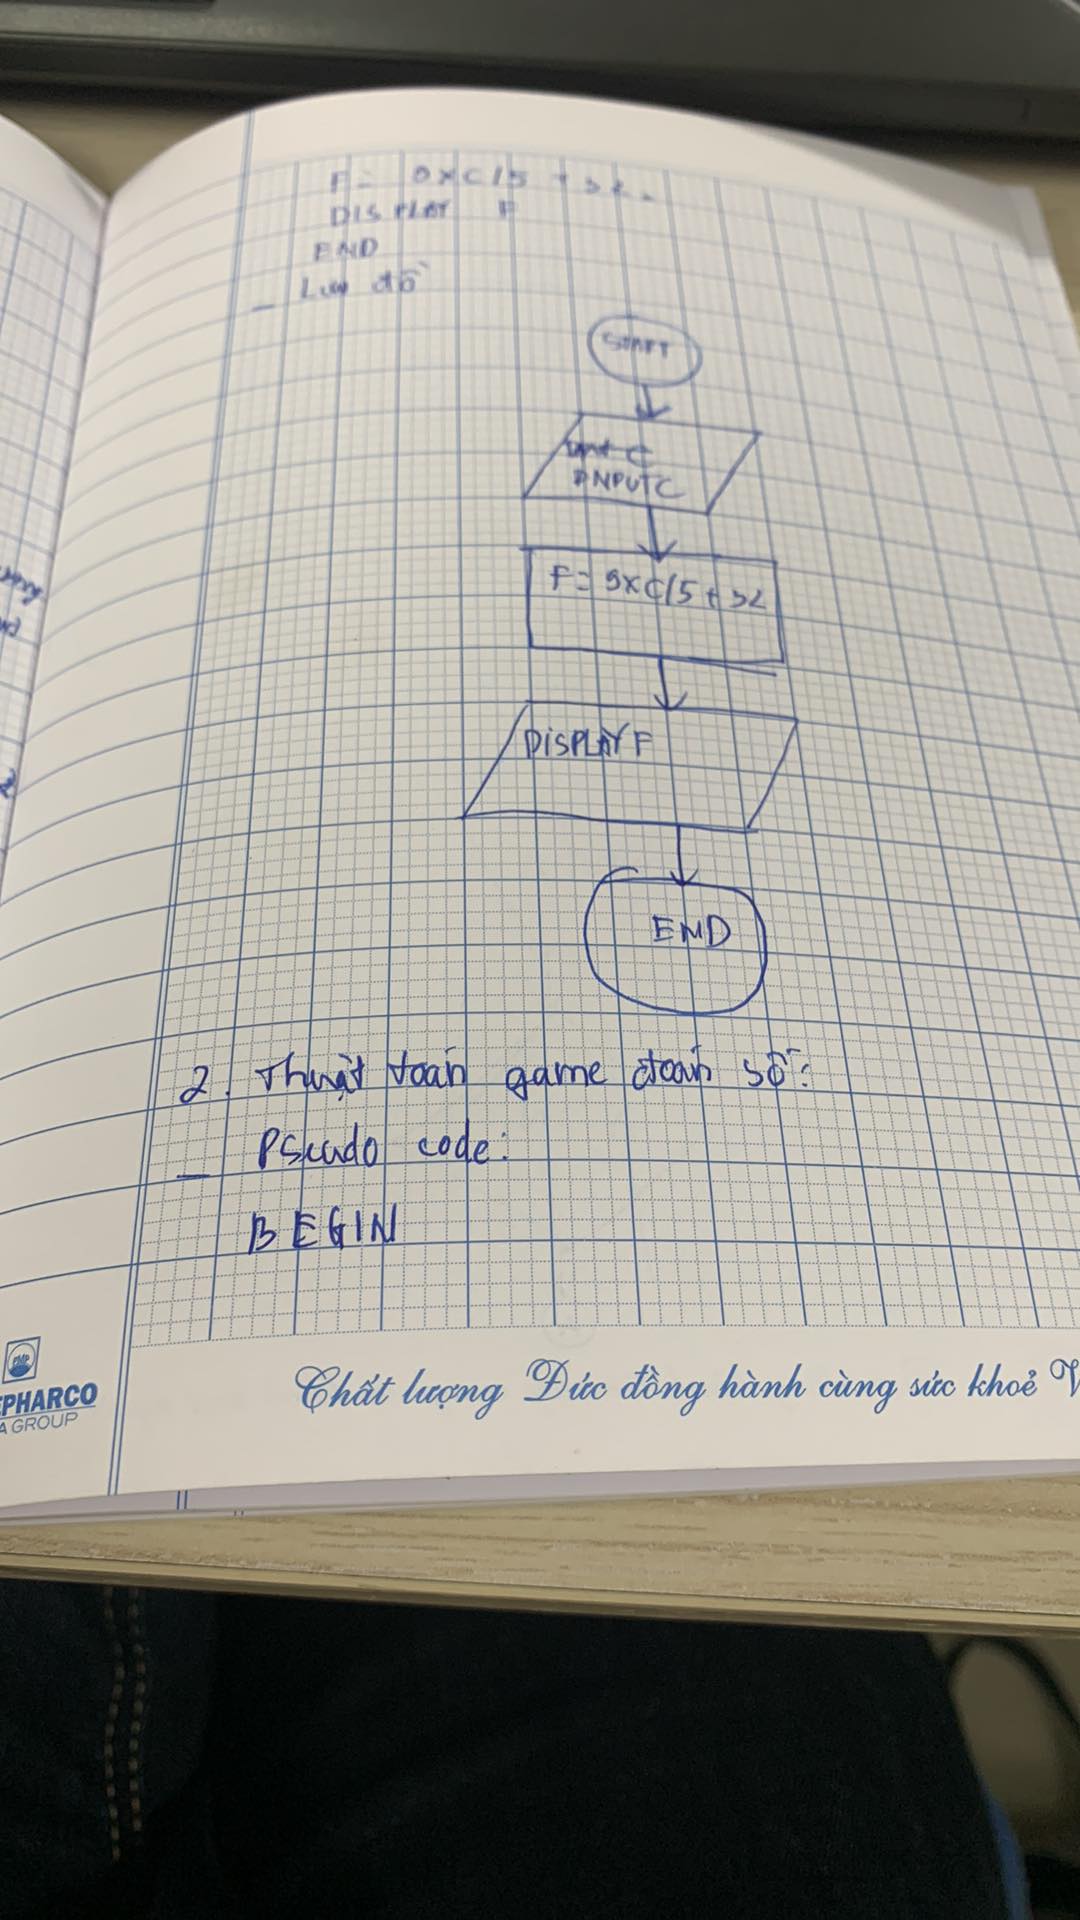 F = 9xC/5 + 32.
DISPLAY F
END
_ Lưu đồ
START
INPUT C
F = 9xC/5 + 32
DISPLAY F
END
2. Thuật toán game đoán số:
_ Pseudo code:
BEGIN
PMP
EPHARCO
A GROUP
Chất lượng Đức đồng hành cùng sức khoẻ V